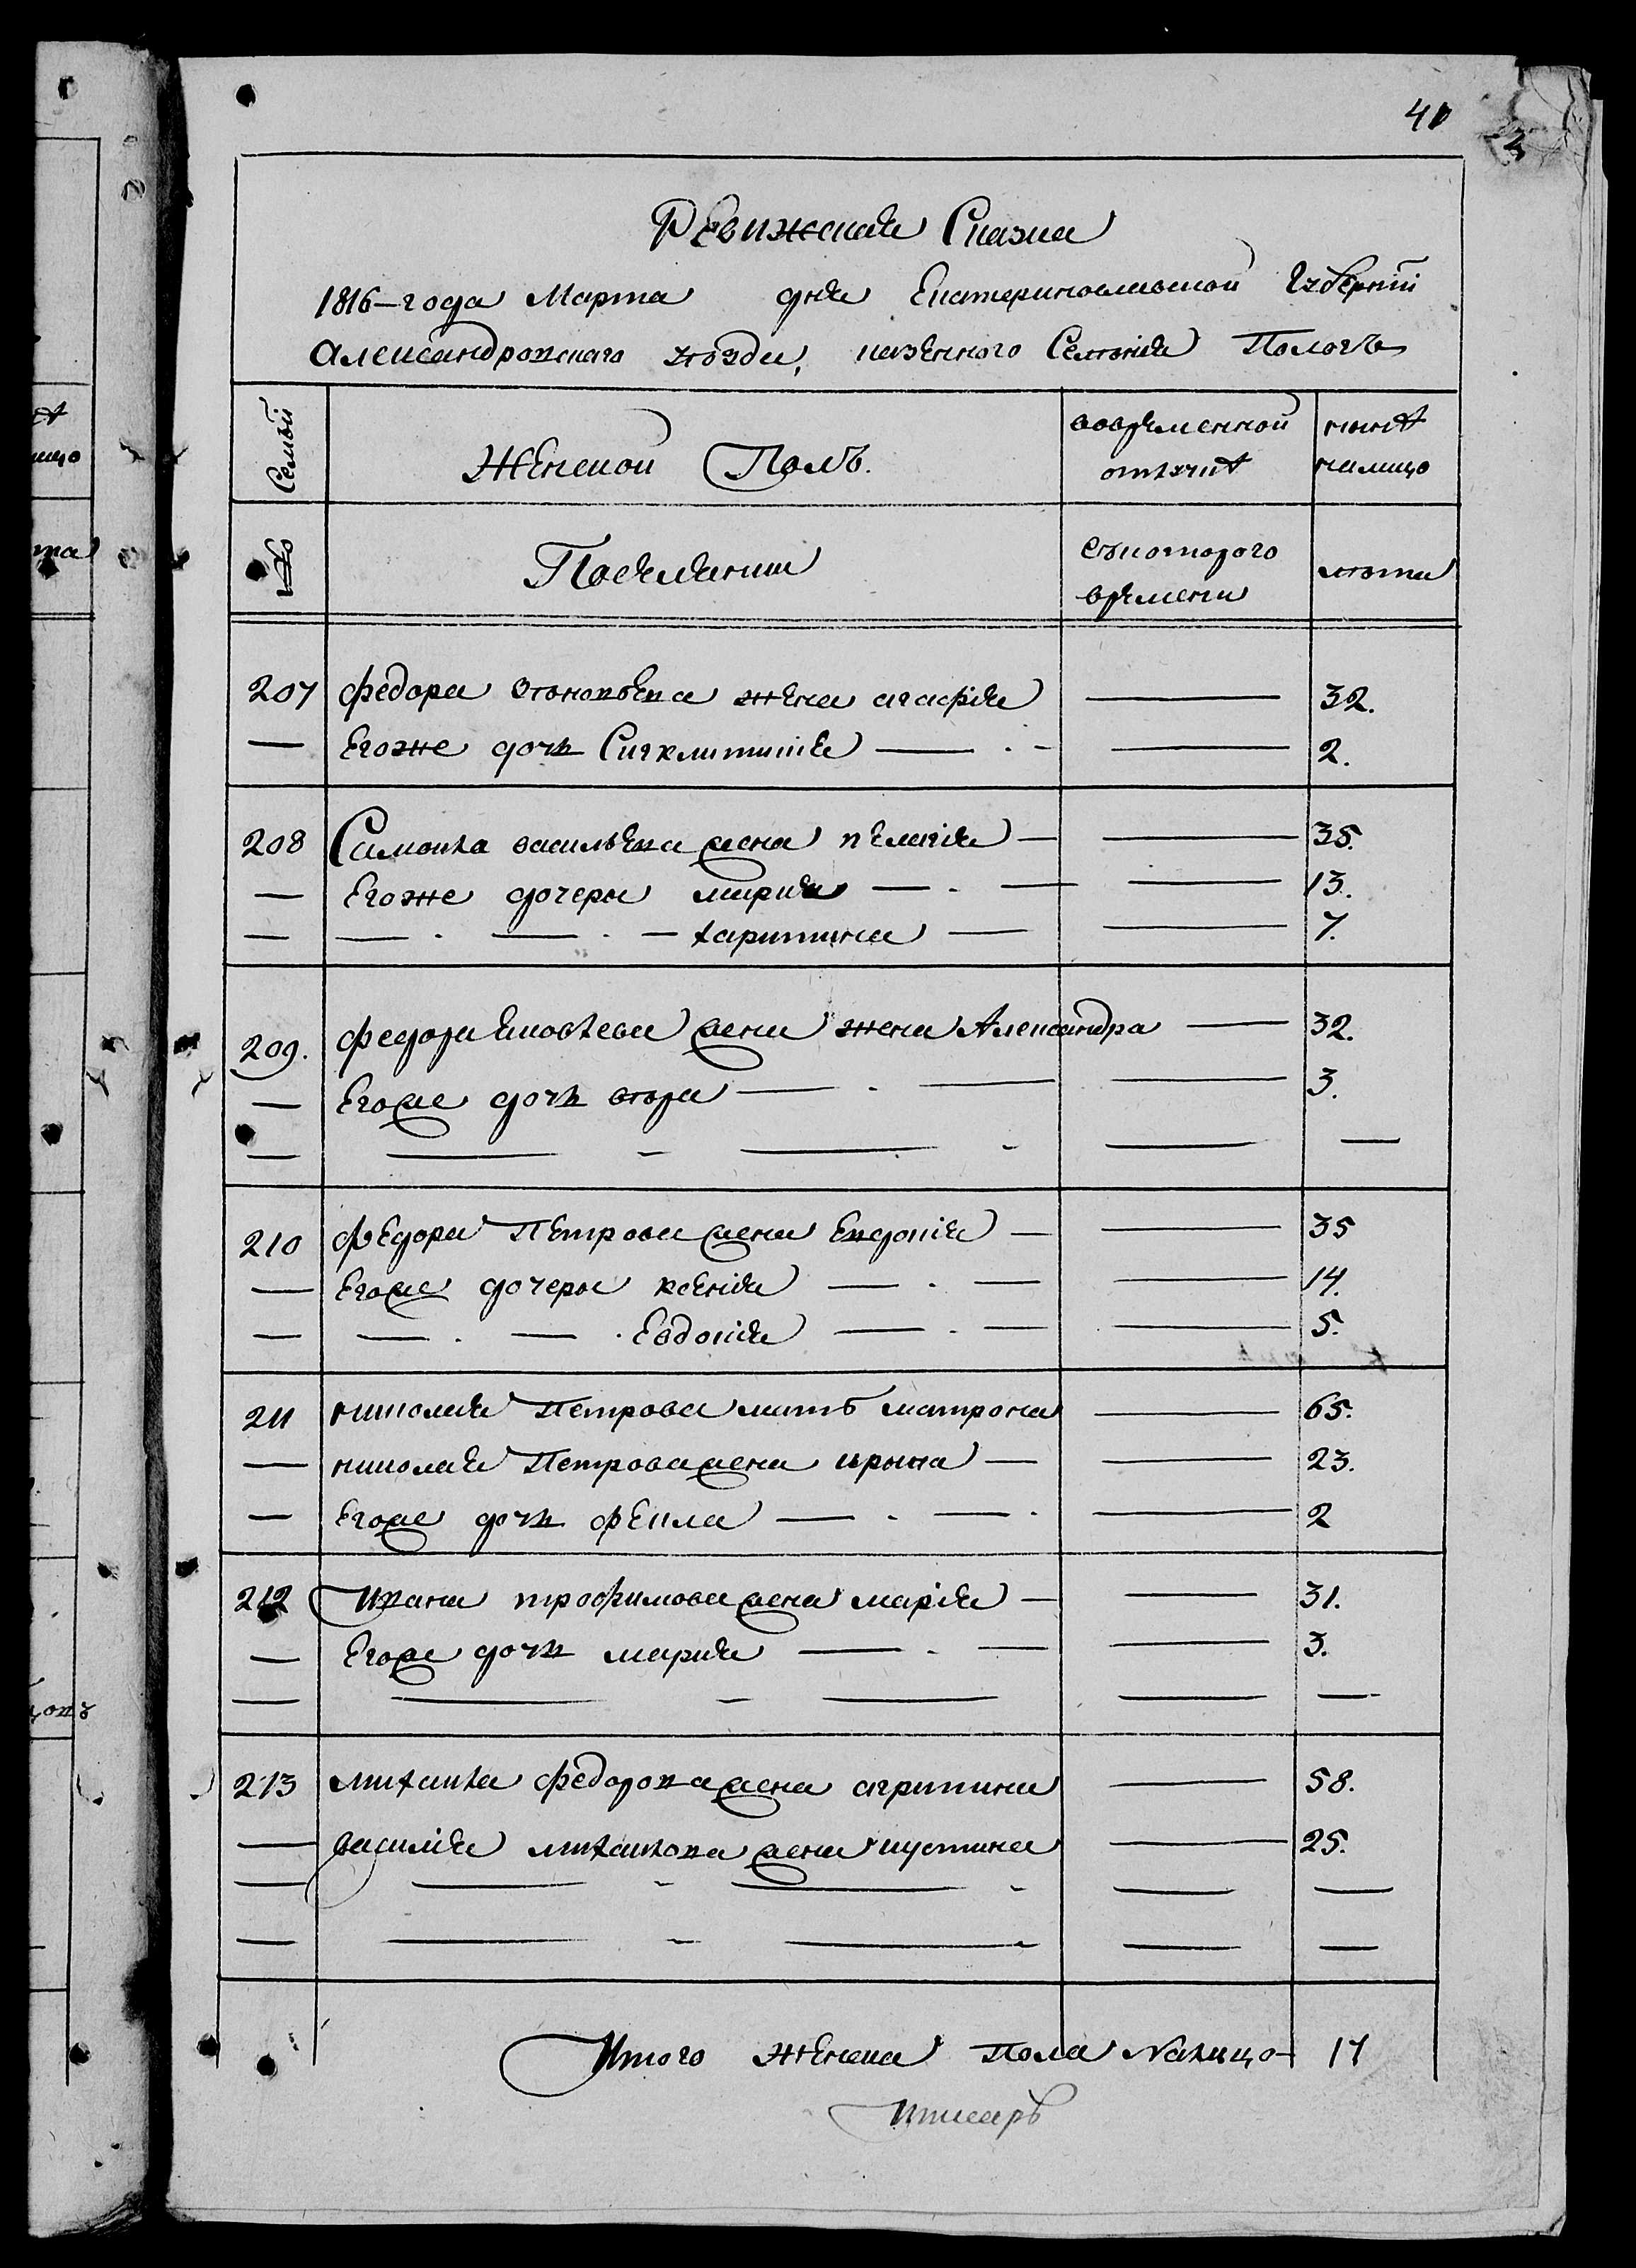 41
Ревижская Сказка
1816-года Марта дня Екатеринославской Губернїи
Александровскаго уѣзда, казенного Селѣния Пологъ
Семьи Женской Полъ. вовременной отлучкѣ нынѣ налицо
№ Поселяники съкоторого времени лѣта
207 федора жена агафия 32.
— Егоже дочь Сигклитикия — 2.
208 Самойла васильева жена пелагия — 35.
— Егоже дочеры мария — 13.
— — харитина — 7.
209. федора Яковлева жена жена Александра — 32.
— Егоже дочь — 3.
210 федора Петрова жена Евдокия — 35
— Егоже дочеры ксения — 14.
— — Евдокия — 5.
211 николая Петрова мать матрона — 65.
— николая Петрова жена ирина — 23.
— Егоже дочь фекла — 2
212 Ивана трофимова жена марїя — 31.
— Егоже дочь мария — 3.
213 михайла федорова жена агрипина — 58.
— василїя михайлова жена иустина — 25.
Итого женска Пола Налицо 17
писарь